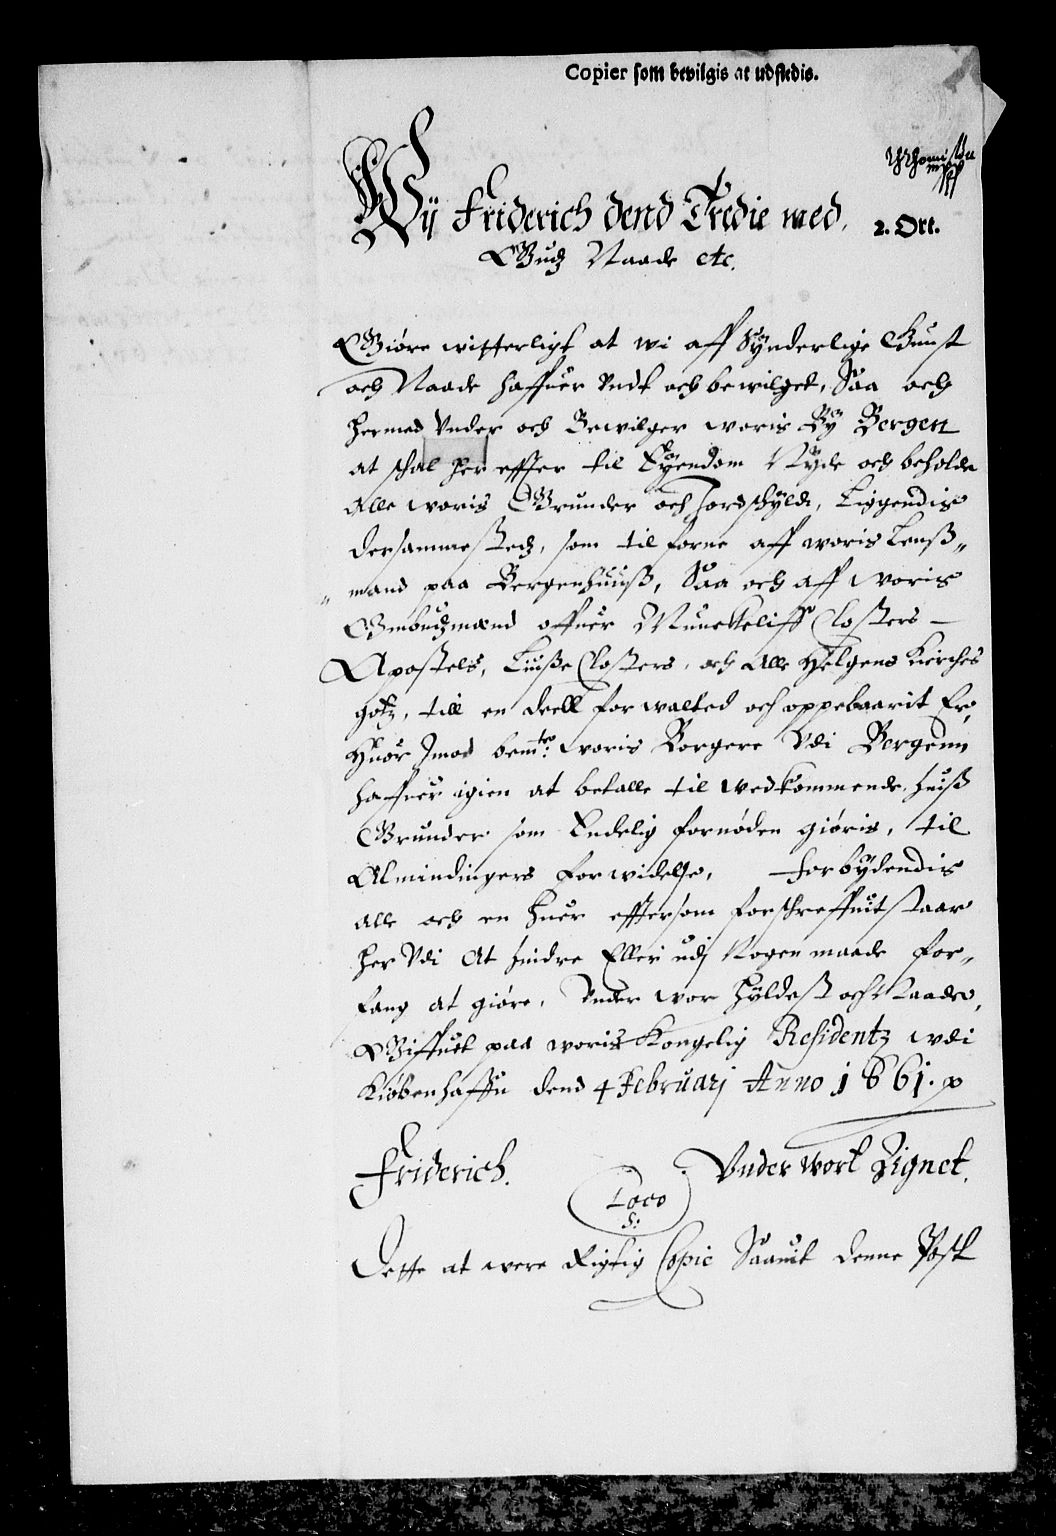 Copier som bevilgis at udstedis.
Wij Friderich dend Tredie med
2. Ort.
Gudz Naade etc.
Giöre witterligt at wi aff Synderlige Gunst
och Naade haffuer Undt och bewilget, Saa och
hermed Under och Bewilger woris By Bergen
at schal her effter til Eyendom Nyde och beholde
Alle woris Grunder och Jordschyld, Liggendis
dersammestedz, som til forne aff woris Lenß„
„mand paa Bergenhuuß, Saa och aff woris
Ombudzmænd offuer Munckeliffs Closters —
Apostels, Lüße Closters, och Alle Helgens Kirches
gotz, till en deell forwalted och oppebaarit Er,
Huor Imod bemte: woris Borgere Udi Bergenn
haffuer igien at betalle til wedkommende, huiß
Grunder som Endelig fornöden giöris, til
Almindingers forwidelse, forbydendis
alle och en huer efftersom forschreffuit staar
her Udi At hindre Eller udj Nogen maade for„
fang at giöre, Under wor hyldest och Naade,
Giffuet paa woris Kongelig Residentz udi
Kiöbenhaffn dend 4 Februarj Anno 1661. p
Friderich.
Under wort Zignet.
Loco
S:
Dette at were Rigtig Copie Saauit denne Post